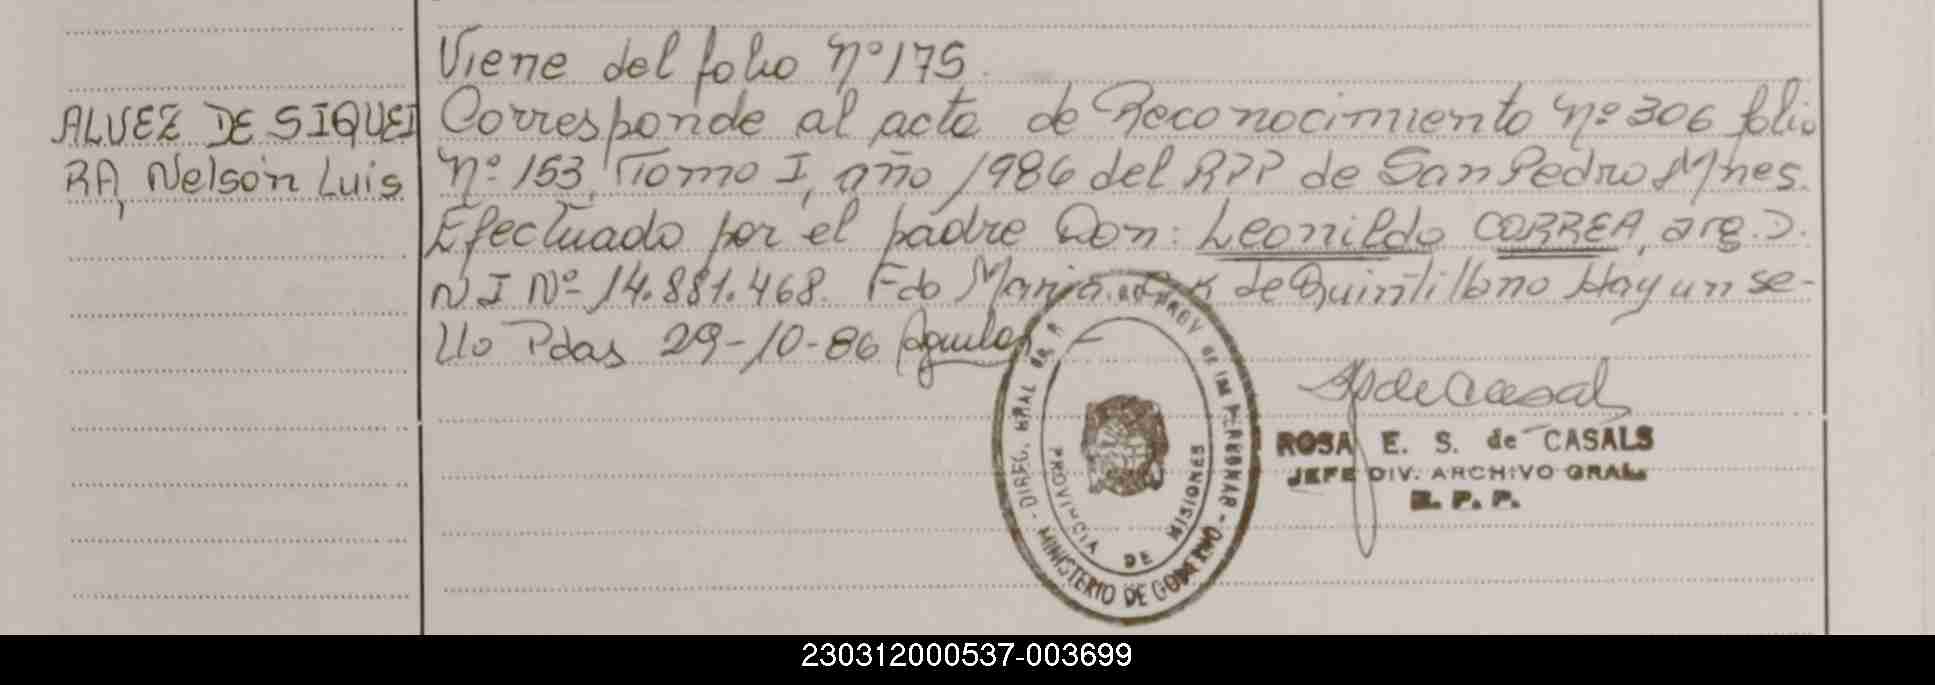 Viene del folio Nº 175.
ALVEZ DE SIQUEI
RA, Nelson Luis
Corresponde al acta de Reconocimiento Nº 306 folio
Nº 153, Tomo I, año 1986 del RPP de San Pedro Mnes.
Efectuado por el padre Don: Leonildo CORREA, arg. D.
N I Nº 14.881.468. Fdo Maria de Quintillano Hay un se-
llo Pdas 29-10-86 Aguilar
DIREG. GRAL DE R PROV DE LAS PERSONAS
PROVINCIA DE MISIONES
MINISTERIO DE GOBIERNO
de Casals
ROSA E. S. de CASALS
JEFE DIV. ARCHIVO GRAL.
R. P. P.
230312000537-003699